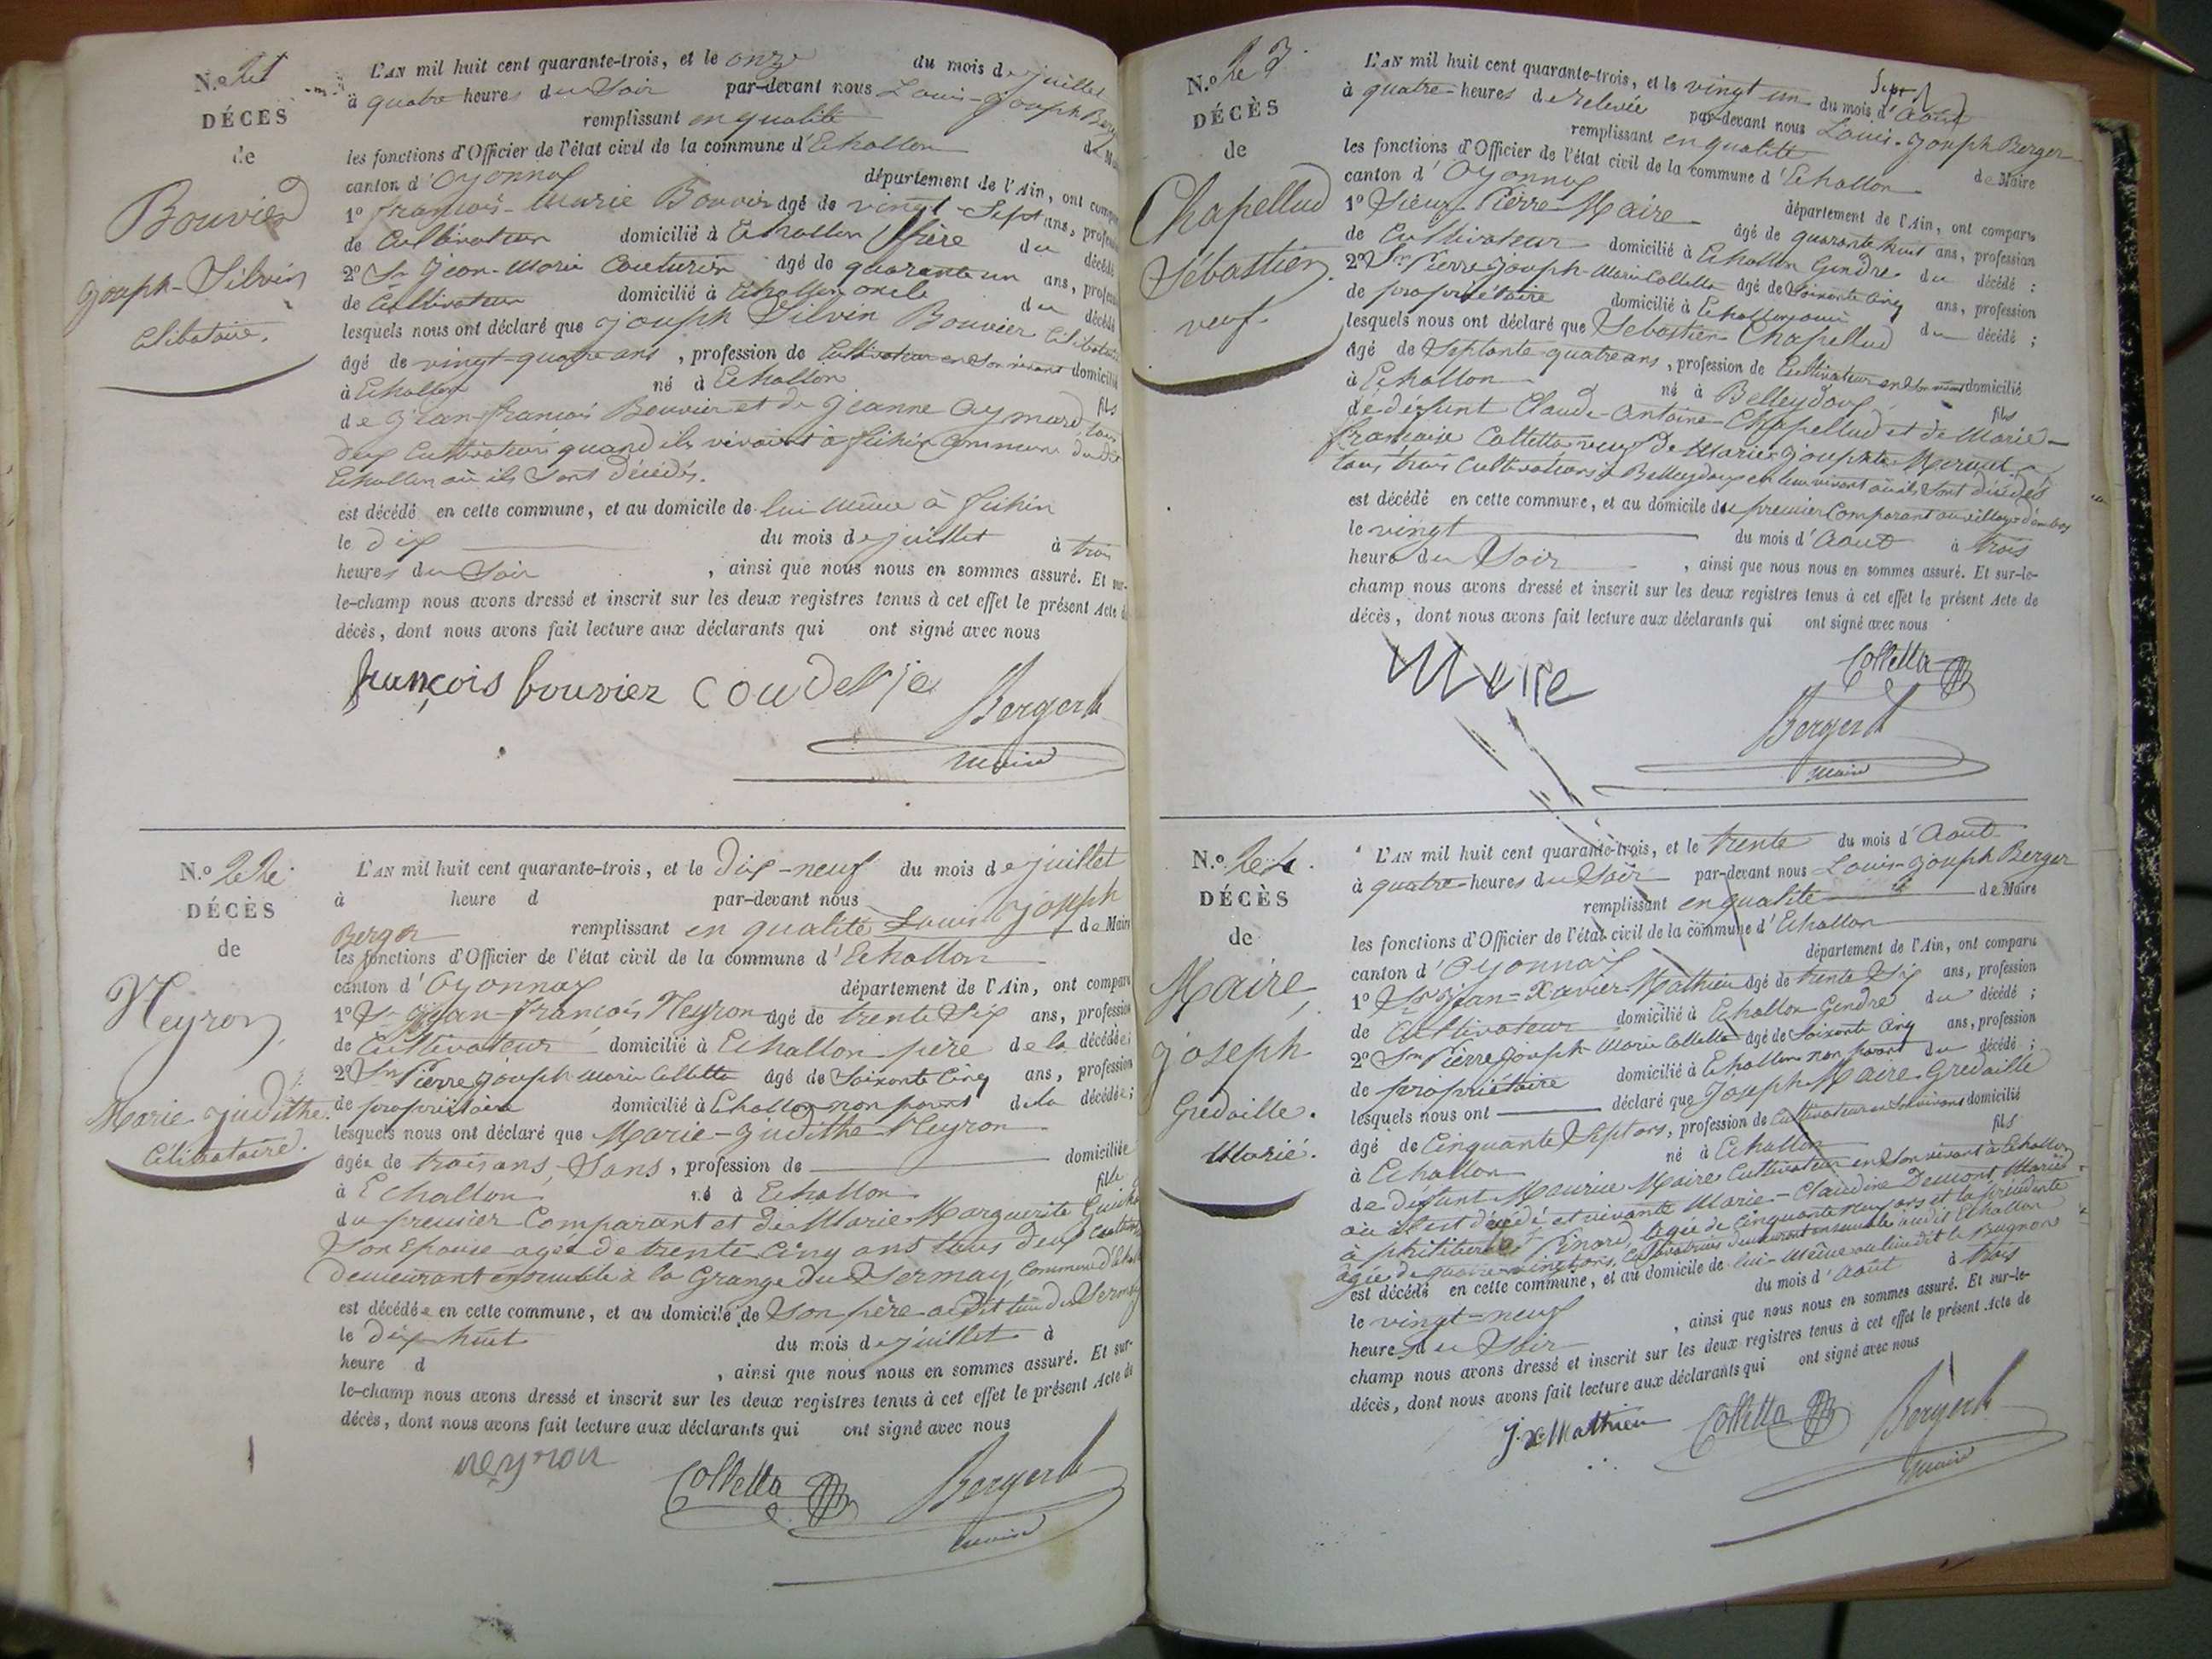 N.o 21
DÉCÈS
de
Bouvier
Joseph-Silvin
célibataire.
L'AN mil huit cent quarante-trois, et le onze du mois de juillet
à quatre heures du Soir par-devant nous Louis-Joseph
remplissant en qualité
les fonctions d'Officier de l'état civil de la commune d'Echallon
canton d'Oyonnax département de l'Ain, ont
1o françois-Marie Bouvier âgé de vingt-Sept ans,
de Cultivateur domicilié à Echallon frère du décédé
2o Sr Jean-Marie Couturier âgé de quarante un ans,
de Cultivateur domicilié à Echallon oncle du décédé
lesquels nous ont déclaré que Joseph Silvin Bouvier
âgé de vingt-quatre ans, profession de Cultivateur en Son vivant
à Echallon né à Echallon fils
de Jean-françois Bouvier et de Jeanne Aymard tous
deux Cultivateurs quand ils vivaient à commune
Echallon où ils sont décédés.
est décédé en cette commune, et au domicile de lui-même à
le dix du mois de juillet à trois
heures du Soir, ainsi que nous nous en sommes assuré. Et sur-
le-champ nous avons dressé et inscrit sur les deux registres tenus à cet effet le présent Acte
décès, dont nous avons fait lecture aux déclarants qui ont signé avec nous
françois bouvier
Berger
Maire
N.o 22
DÉCÈS
de
Neyron,
Marie-Judithe.
Célibataire.
L'AN mil huit cent quarante-trois, et le Dix-neuf du mois de juillet
à heure d par-devant nous Louis Joseph
Berger remplissant en qualité de Maire
les fonctions d'Officier de l'état civil de la commune d'Echallon
canton d'Oyonnax département de l'Ain, ont comparu
1o Sr Jean-françois Neyron âgé de trente Six ans, profession
de Cultivateur domicilié à Echallon père de la décédée;
2o Sr Pierre Joseph-Marie Colletta âgé de Soixante Cinq ans, profession
de propriétaire domicilié à Echallon non parent de la décédée;
lesquels nous ont déclaré que Marie-Judithe Neyron
âgée de trois ans, Sans, profession de domiciliée
à Echallon né à Echallon fille
du premier Comparant et de Marie Marguerite
Son Epouse agée de trente Cinq ans tous deux
demeurant ensemble à la Grange du Sermay, Commune
est décédée en cette commune, et au domicile de Son père audit lieu du Sermay
le dix-huit du mois de juillet à
heure d, ainsi que nous nous en sommes assuré. Et sur-
le-champ nous avons dressé et inscrit sur les deux registres tenus à cet effet le présent Acte de
décès, dont nous avons fait lecture aux déclarants qui ont signé avec nous
neyron
Colletta
Berger
Maire
N.o 23.
DÉCÈS
de
Chapellud
Sébastien.
veuf.
L'AN mil huit cent quarante-trois, et le vingt un du mois d'Août
à quatre heures de relevée par-devant nous Louis-Joseph Berger
remplissant en qualité de Maire
les fonctions d'Officier de l'état civil de la commune d'Echallon
canton d'Oyonnax département de l'Ain, ont comparu
1o Sieur Pierre Maire âgé de quarante huit ans, profession
de Cultivateur domicilié à Echallon Gendre du décédé;
2o Sr Pierre Joseph-Marie Colletta âgé de Soixante Cinq ans, profession
de propriétaire domicilié à Echallon du décédé;
lesquels nous ont déclaré que Sébastien Chapellud
âgé de Septante-quatre ans, profession de Cultivateur en Son vivant domicilié
à Echallon né à Belleydoux fils
de défunt Claude-Antoine Chapellud et de Marie-
française Colletta veuf de Marie Josephte
tous trois Cultivateurs à Belleydoux en leur vivant où ils sont décédés
est décédé en cette commune, et au domicile du premier Comparant au village
le vingt du mois d'Août à trois
heure du Soir, ainsi que nous nous en sommes assuré. Et sur-le-
champ nous avons dressé et inscrit sur les deux registres tenus à cet effet le présent Acte de
décès, dont nous avons fait lecture aux déclarants qui ont signé avec nous
Maire
Colletta
Berger
Maire
N.o 24.
DÉCÈS
de
Maire,
Joseph
Gredaille.
Marié.
L'AN mil huit cent quarante-trois, et le trente du mois d'Août
à quatre heures du Soir par-devant nous Louis-Joseph Berger
remplissant en qualité de Maire
les fonctions d'Officier de l'état civil de la commune d'Echallon
canton d'Oyonnax département de l'Ain, ont comparu
1o Sr Jean-Xavier Mathieu âgé de trente Six ans, profession
de Cultivateur domicilié à Echallon Gendre du décédé;
2o Sr Pierre Joseph-Marie Colletta âgé de Soixante Cinq ans, profession
de propriétaire domicilié à Echallon non parent du décédé;
lesquels nous ont déclaré que Joseph Maire Gredaille
âgé de Cinquante Sept ans, profession de Cultivateur en Son vivant domicilié
à Echallon né à Echallon fils
de défunt Maurice Maire Cultivateur en Son vivant à Echallon
où il est décédé et vivante Marie-Claudine Demont Marié
à Pinard, âgée de Cinquante neuf ans et la précédente
âgée de quatre-vingt ans, Cultivatrices demeurant ensemble audit Echallon
est décédé en cette commune, et au domicile de lui-même au lieu dit le Bugnon
le vingt-neuf du mois d'Août à trois
heures du Soir, ainsi que nous nous en sommes assuré. Et sur-le-
champ nous avons dressé et inscrit sur les deux registres tenus à cet effet le présent Acte de
décès, dont nous avons fait lecture aux déclarants qui ont signé avec nous
J. X Mathieu
Colletta
Berger
Maire